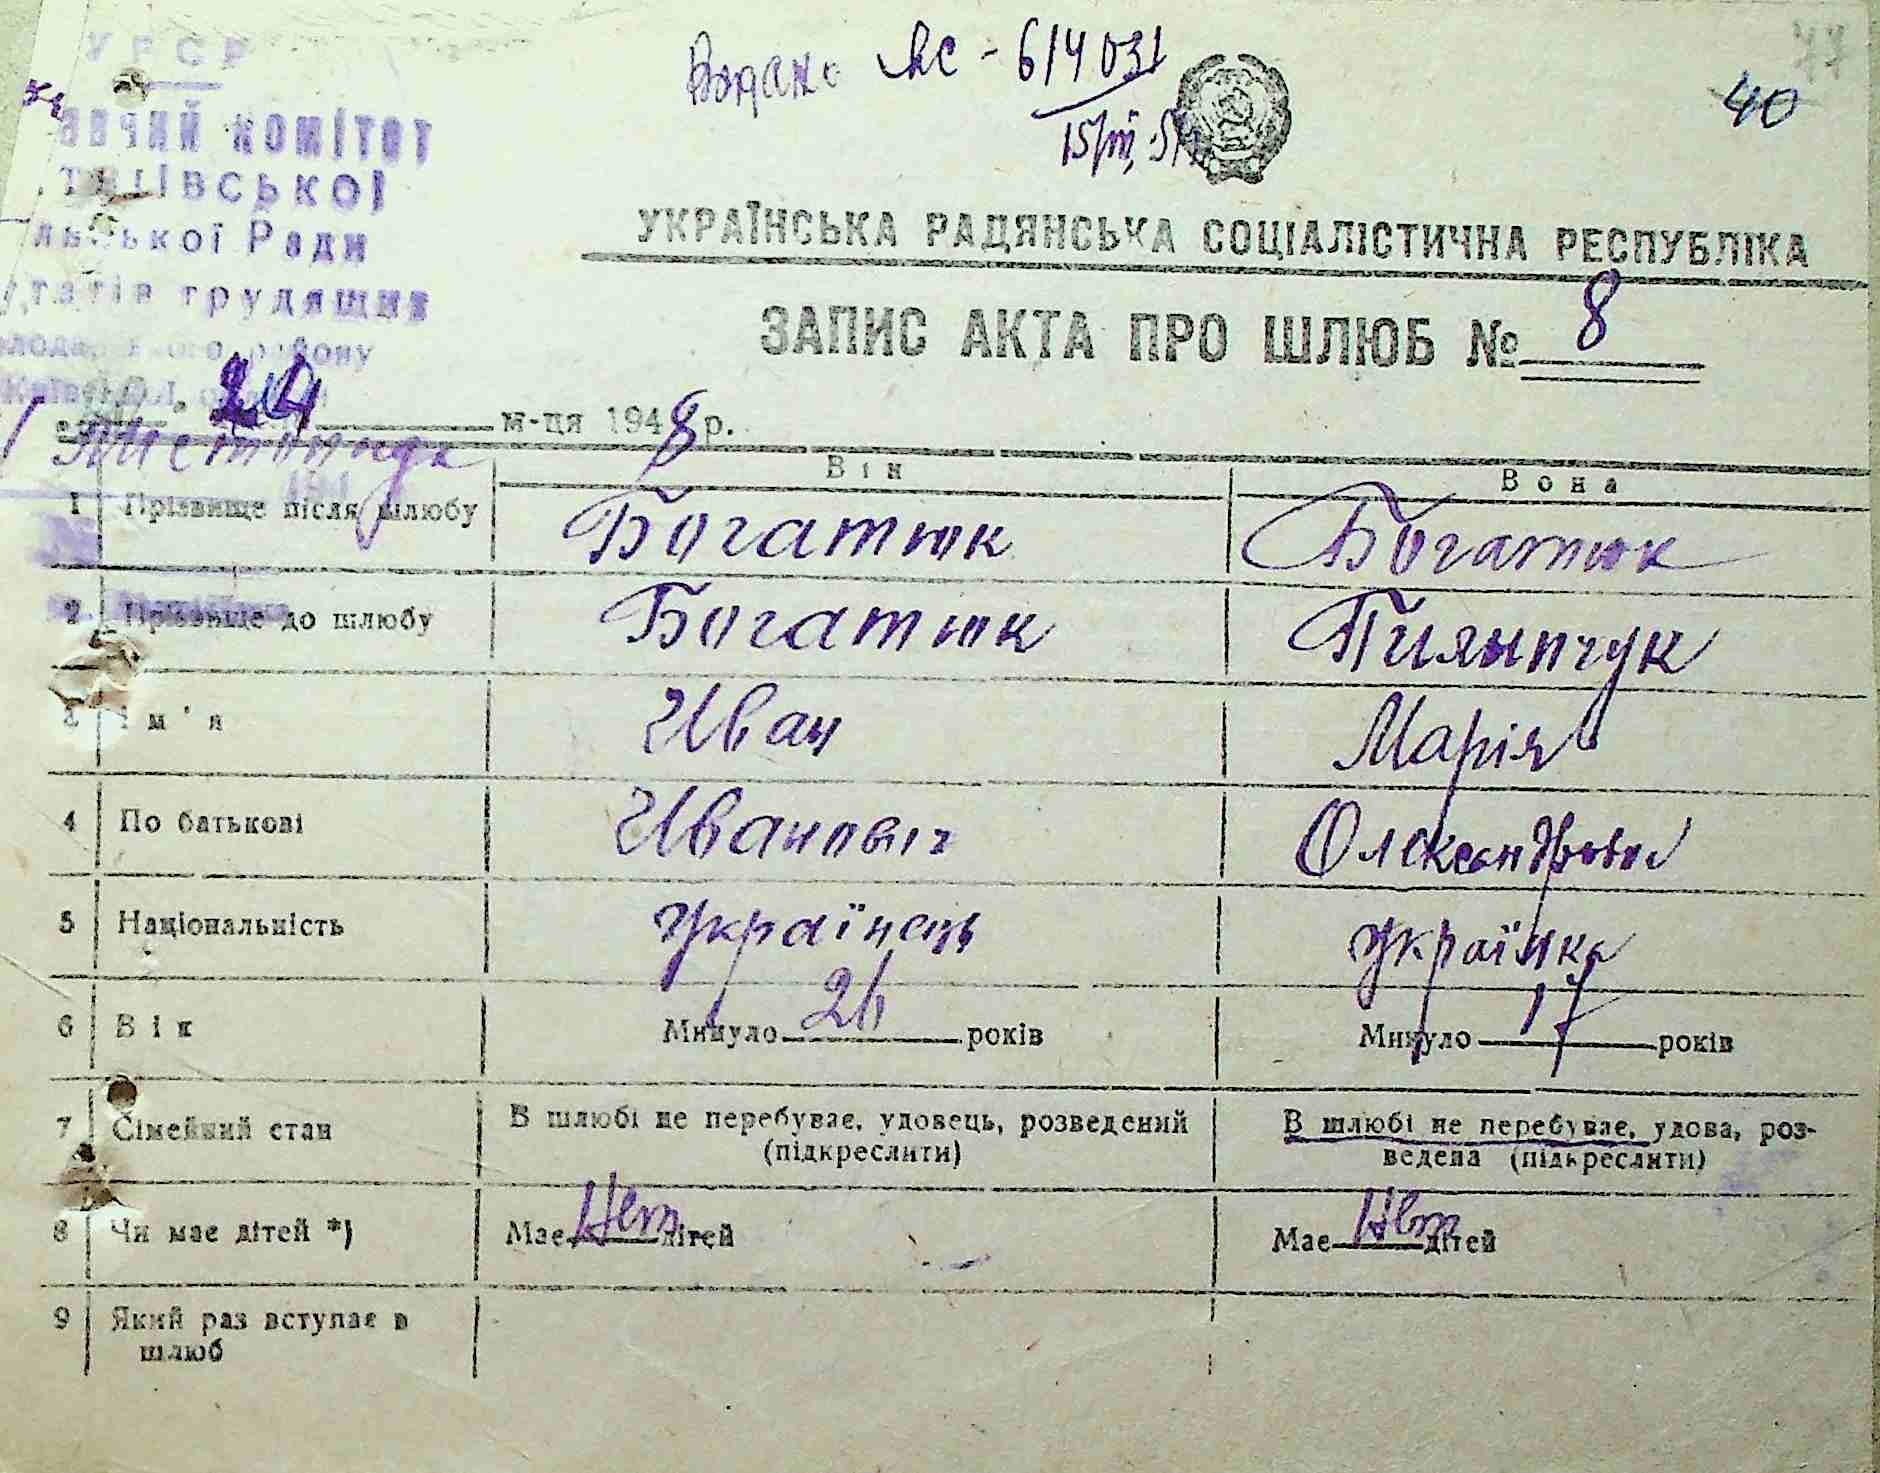 УРСР
вчий комітет
Ради
трудящих
району
Видано ЯС - 614031
40
УКРАЇНСЬКА РАДЯНСЬКА СОЦІАЛІСТИЧНА РЕСПУБЛІКА
ЗАПИС АКТА ПРО ШЛЮБ № 8
м-ця 1948 р.
Він Вона
1 Прізвище після шлюбу Богатюк Богатюк
2 Прізвище до шлюбу Богатюк
3 Ім'я Иван Марія
4 По батькові Ивановіч Олександровна
5 Національність Українець Українка
6 Вік Минуло 26 років Минуло 17 років
7 Сімейний стан В шлюбі не перебуває, удовець, розведений (підкреслити) В шлюбі не перебуває, удова, роз-
ведена (підкреслити)
8 Чи має дітей *) Має Нет дітей Має Нет дітей
9 Який раз вступає в
шлюб